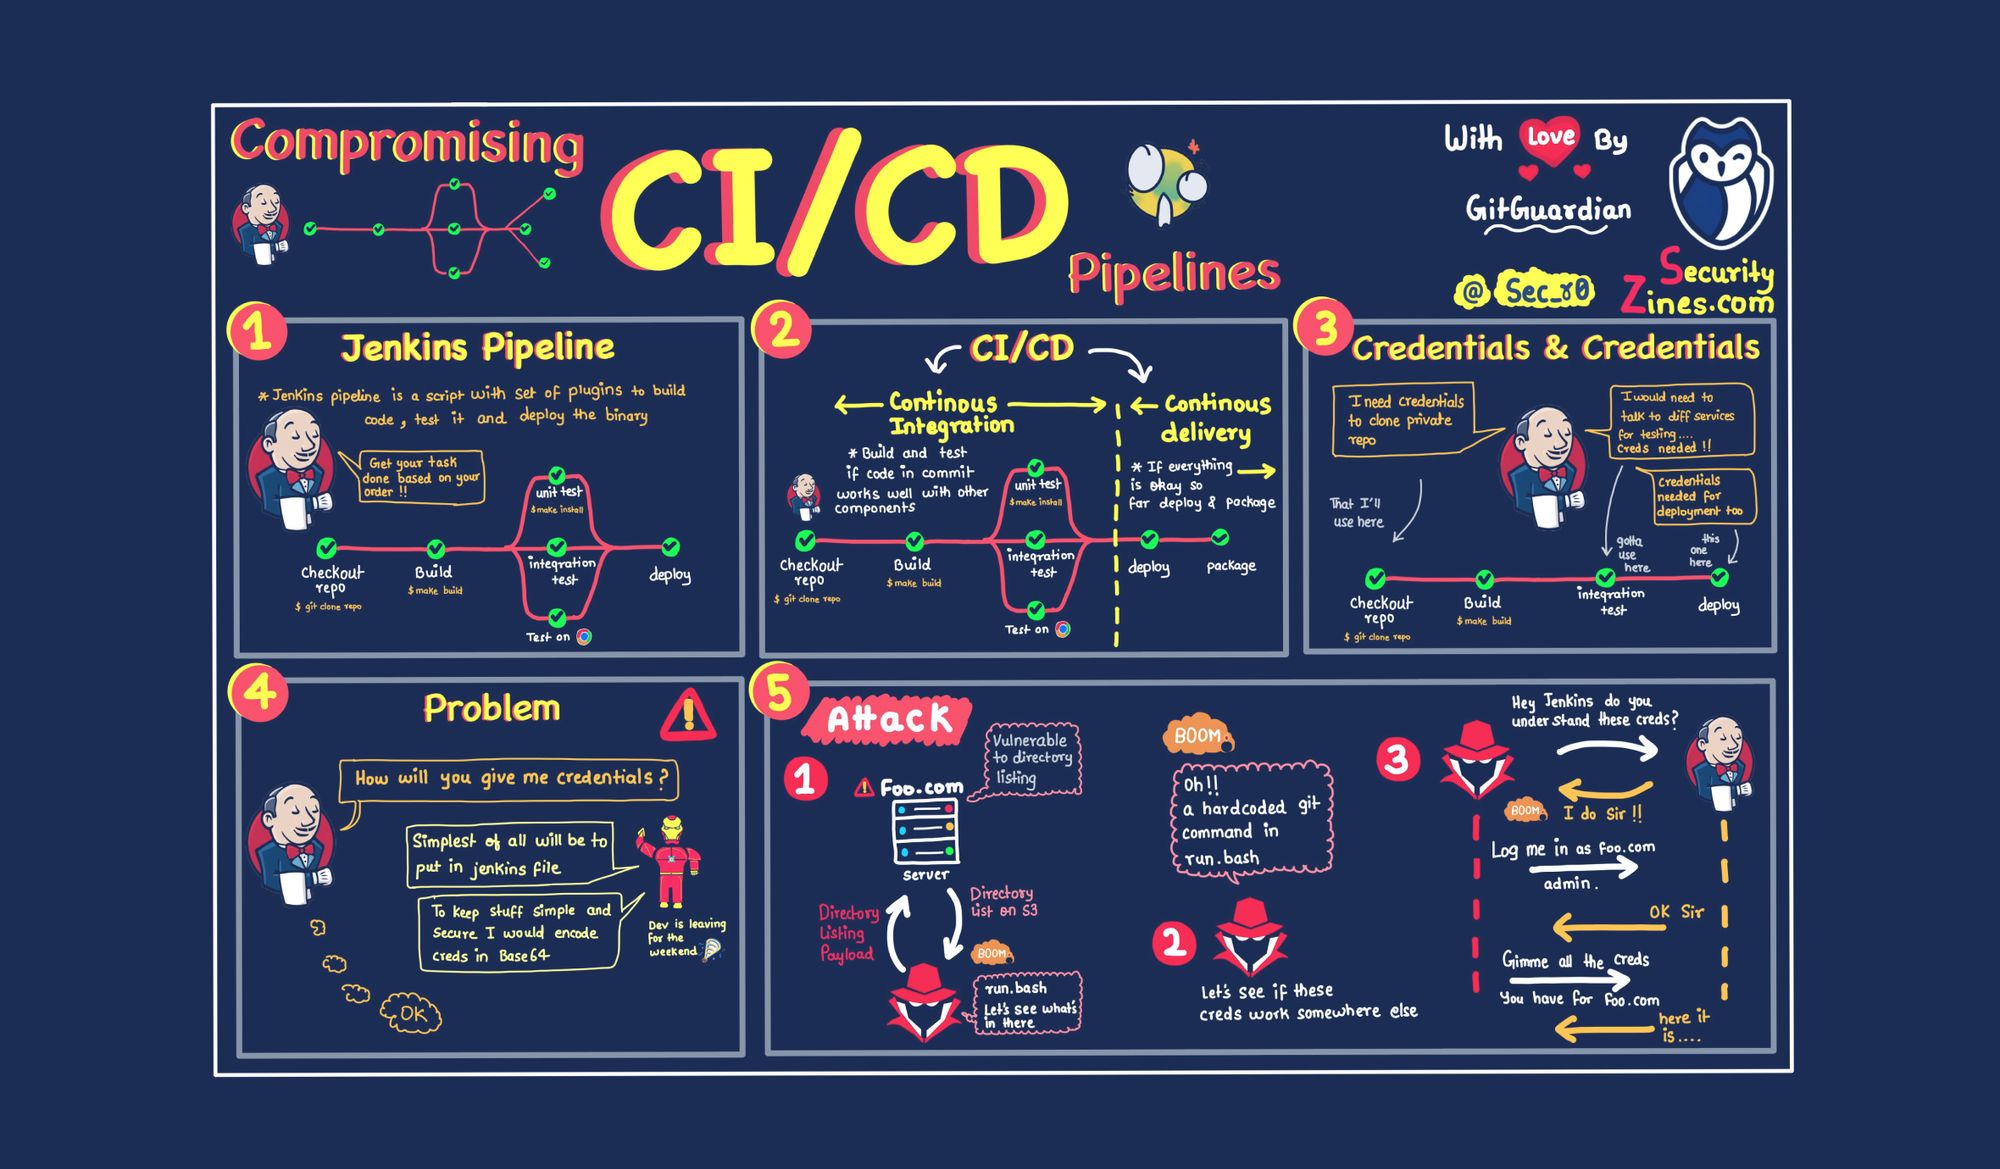 Compromising
CI/CD
Pipelines
With Love By
GitGuardian
@ Sec_r0
Security
Zines.com
1
Jenkins Pipeline
* Jenkins pipeline is a script with set of plugins to build
code, test it and deploy the binary
Get your task
done based on your
order !!
unit test
$ make install
Checkout
repo
$ git clone repo
Build
$ make build
integration
test
deploy
Test on
2
CI/CD
Continous
Integration
* Build and test
if code in commit
works well with other
components
Continous
delivery
* If everything
is okay so
far deploy & package
unit test
$ make install
Checkout
repo
$ git clone repo
Build
$ make build
integration
test
deploy
package
Test on
3
Credentials & Credentials
I need credentials
to clone private
repo
I would need to
talk to diff services
for testing....
Creds needed !!
Credentials
needed for
deployment too
That I'll
use here
gotta
use
here
this
one
here
Checkout
repo
$ git clone repo
Build
$ make build
integration
test
deploy
4
Problem
!
How will you give me credentials?
Simplest of all will be to
put in jenkins file
To keep stuff simple and
secure I would encode
creds in Base64
Dev is leaving
for the
weekend
OK
5
Attack
1
Vulnerable
to directory
listing
Foo.com
server
Directory
Listing
Payload
Directory
list on S3
BOOM
run.bash
Let's see what's
in there
BOOM
Oh!!
a hardcoded git
command in
run.bash
2
Let's see if these
creds work somewhere else
3
Hey Jenkins do you
understand these creds?
BOOM
I do Sir !!
Log me in as foo.com
admin.
OK Sir
Gimme all the creds
you have for foo.com
here it
is....